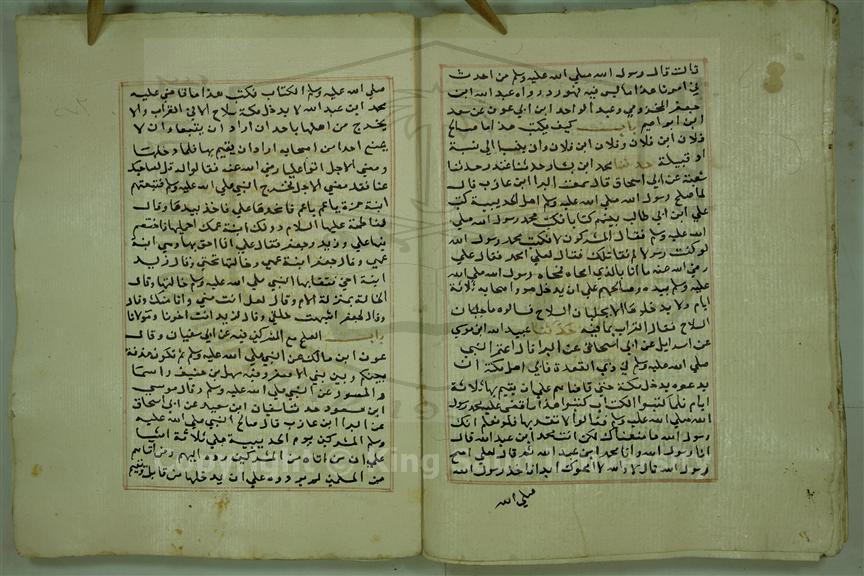 قالت قال رسول الله صلى الله عليه وسلم من احدث
في امرنا هذا ما ليس فيه فهو رد رواه عبد الله ابن
جعفر المخزومي وعبد الواحد ابن ابي عون عن سعد
ابن ابراهيم باب كيف يكتب هذا ما صالح
فلان ابن فلان وفلان ابن فلان وان ينسبه الى نسبه
او قبيلة حدثنا محمد ابن بشار حدثنا غندر حدثنا
شعبة عن ابي اسحاق قال سمعت البرا ابن عازب قال
لما صالح رسول الله صلى الله عليه وسلم اهل الحديبية كتب
علي ابن ابي طالب بينهم كتابا فكتب محمد رسول الله صلى
الله عليه وسلم فقال المشركون لا تكتب محمد رسول الله
لو كنت رسولا لم نقاتلك فقال لعلي امحه فقال علي
رضي الله عنه ما انا بالذي امحاه فمحاه رسول الله صلى الله
عليه وسلم بيده وصالحهم على ان يدخل هو واصحابه ثلاثة
ايام ولا يدخلوها الا بجلبان السلاح فسالوه ما جلبان
السلاح فقال القراب بما فيه حدثنا عبيد الله ابن موسى
عن اسرايل عن ابي اسحاق عن البرا قال اعتمر النبي
صلى الله عليه وسلم في ذي القعدة فابى اهل مكة ان
يدعوه يدخل مكة حتى قاضاهم على ان يقيم بها ثلاثة
ايام فلما كتبوا الكتاب كتبوا هذا ما قاضى عليه محمد رسول
الله صلى الله عليه وسلم فقالوا لا نقر بها فلو نعلم انك
رسول الله ما منعناك لكن انت محمد ابن عبد الله قال
انا رسول الله وانا محمد ابن عبد الله ثم قال لعلي امح
رسول الله قال لا والله لا امحوك ابدا فاخذ رسول الله
صلى الله
صلى الله عليه وسلم الكتاب فكتب هذا ما قاضى عليه
محمد ابن عبد الله لا يدخل مكة سلاح الا في القراب والا
يخرج من اهلها باحد ان اراد ان يتبعه وان لا
يمنع احدا من اصحابه اراد ان يقيم بها فلما دخلها
ومضى الاجل اتوا عليا رضي الله عنه فقالوا له قل لصاحبك
عنا فقد مضى الاجل فخرج النبي صلى الله عليه وسلم فتبعتهم
ابنة حمزة يا عم يا عم فاخذها علي فاخذ بيدها وقال
لفاطمة عليها السلام دونك ابنة عمك احمليها فاختصم
فيها علي وزيد وجعفر فقال علي انا احق بها وهي ابنة
عمي وقال جعفر ابنة عمي وخالتها تحتي وقال زيد
ابنة اخي فقضى بها النبي صلى الله عليه وسلم لخالتها وقال
الخالة بمنزلة الام وقال لعلي انت مني وانا منك وقال
وقال لجعفر اشبهت خلقي وقال لزيد انت اخونا ومولانا
باب الصلح مع المشركين فيه عن ابي سفيان وقال
عوف ابن مالك عن النبي صلى الله عليه وسلم ثم تكون هدنة
بينكم وبين بني الاصفر وفيه سهل بن حنيف واسما
والمسور عن النبي صلى الله عليه وسلم وقال موسى
ابن مسعود حدثنا سفيان ابن سعيد عن ابي اسحاق
عن البرا ابن عازب قال صالح النبي صلى الله عليه
وسلم المشركين يوم الحديبية على ثلاثة اشيا
على ان من اتاه من المشركين رده اليهم ومن اتاهم
من المسلمين لم يردوه وعلى ان يدخلها من قابل ويقيم